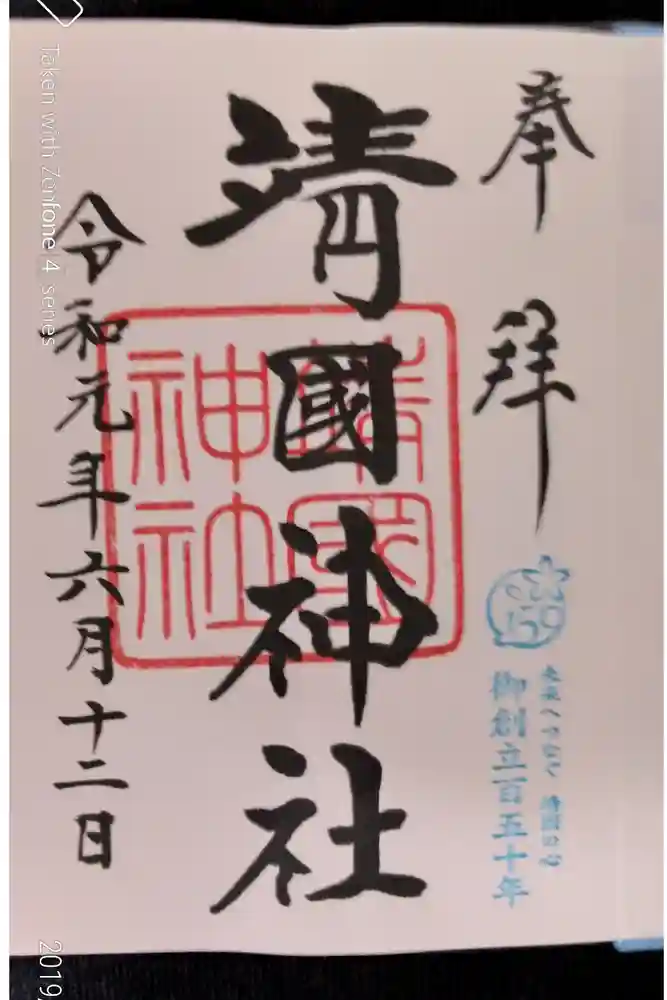 奉拝
150
未来へつなぐ 靖國の心
御創立百五十年
靖國神社
靖國神社
令和元年六月十二日
Taken with Zenfone 4 series
2019